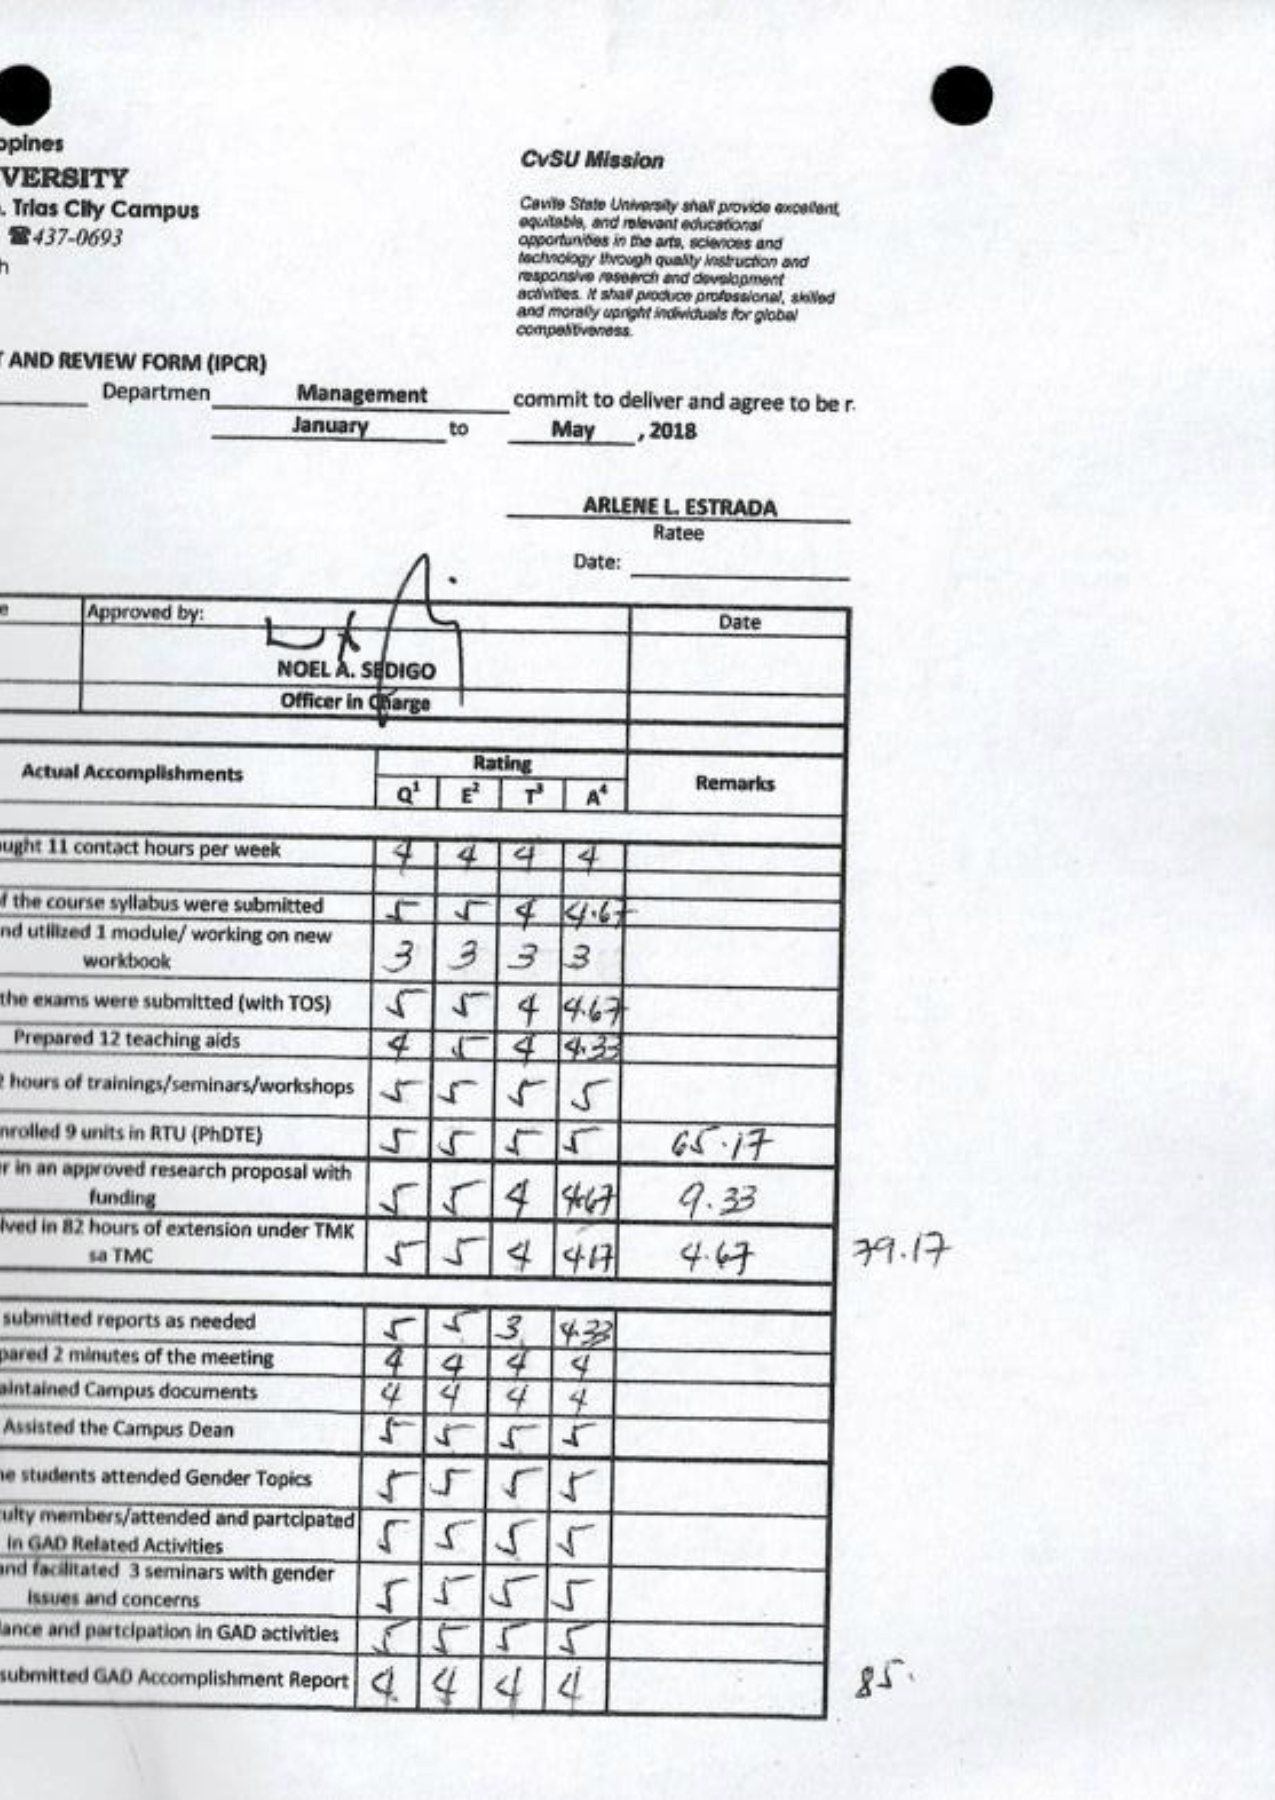 ppines
CvSU Mission
VERSITY
. Trias City Campus
☎437-0693
h
Cavite State University shall provide excellent,
equitable, and relevant educational
opportunities in the arts, sciences and
technology through quality instruction and
responsive research and development
activities. It shall produce professional, skilled
and morally upright individuals for global
competitiveness.
T AND REVIEW FORM (IPCR)
Departmen Management commit to deliver and agree to be r.
January to May , 2018
ARLENE L. ESTRADA
Ratee
Date:
e Approved by: Date
NOEL A. SEDIGO
Officer in Charge
Actual Accomplishments Rating Remarks
Q¹ E² T³ A⁴
ught 11 contact hours per week 4 4 4 4
f the course syllabus were submitted 5 5 4 4.67
nd utilized 1 module/ working on new
workbook 3 3 3 3
the exams were submitted (with TOS) 5 5 4 4.67
Prepared 12 teaching aids 4 5 4 4.33
2 hours of trainings/seminars/workshops 5 5 5 5
nrolled 9 units in RTU (PhDTE) 5 5 5 5 65.17
r in an approved research proposal with
funding 5 5 4 4.67 9.33
lved in 82 hours of extension under TMK
sa TMC 5 5 4 4.17 4.67 79.17
submitted reports as needed 5 5 3 4.33
pared 2 minutes of the meeting 4 4 4 4
aintained Campus documents 4 4 4 4
Assisted the Campus Dean 5 5 5 5
he students attended Gender Topics 5 5 5 5
culty members/attended and partcipated
in GAD Related Activities 5 5 5 5
and facilitated 3 seminars with gender
issues and concerns 5 5 5 5
lance and partcipation in GAD activities 5 5 5 5
submitted GAD Accomplishment Report 4 4 4 4 85.